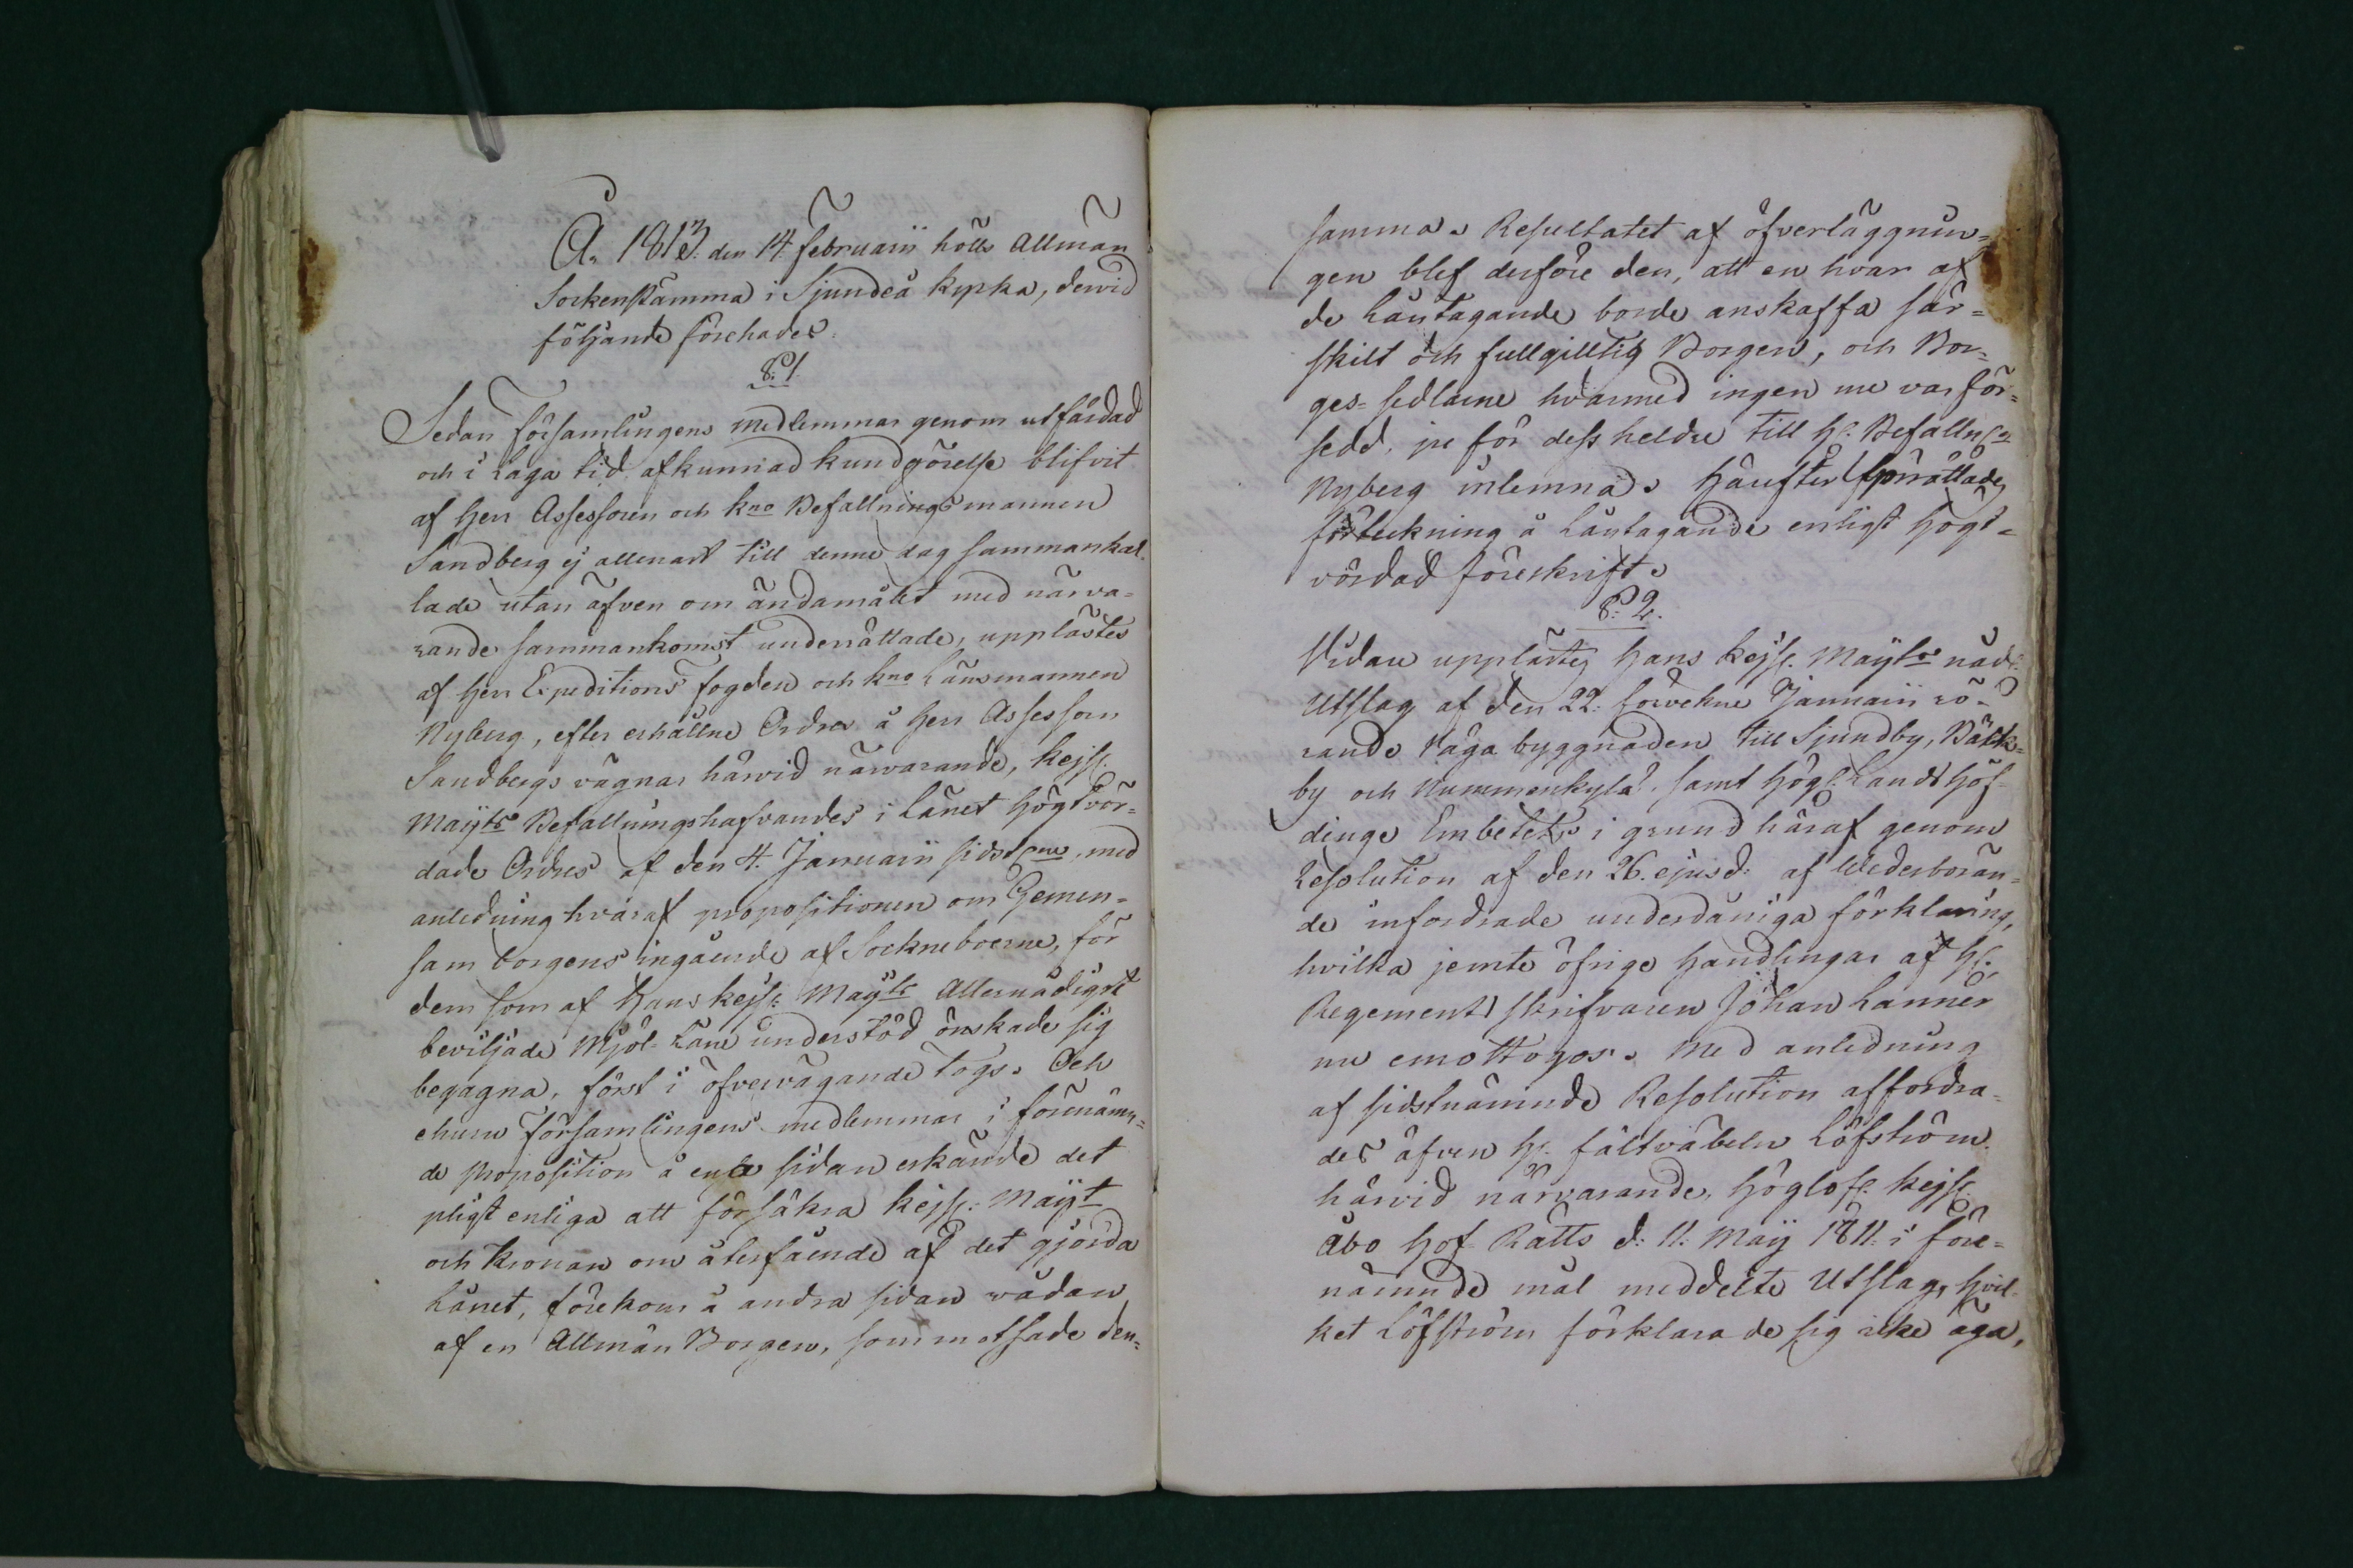 Å. 1813. den 14 Februarii hölls Allmän
Sockenstämma i Sjundeå kyrka, dervid
följande förehades.
§. 1.
Sedan Församlingens medlemmar genom utfärdad
och i laga tid afkunnad kundgörelse blifvit
af Herr Assessoren och kno Befallningsmannen
Sandberg ej allenast till denne dag sammankal-
lade utan äfven om ändamålet med närva-
rande sammankomst underrättade, upplästes
af Herr Expeditions Fogden och kno Länsmannen
Nyberg, efter erhållne Ordres å Herr Assessorn
Sandbergs vägnar härvid närvarande, Kejs.
Mayts Befallningshafvandes i Länet högtvör-
dade Ordres af den 4. Januarii sidstl. med
anledning hvaraf propositionen om Gemen-
sam borgens ingående af Sockneboerne, för
dem som af Hans kejs. Mayts Allernådigst
beviljade Mjöl-Låne understöd önskade sig
begagna, först i öfvervägande togs. Och
ehuru Församlingens medlemmar i förenämn-
de proposition å ena sidan erkände det
pligt enliga att försäkra Kejs. Mayt
och Kronan om återfående af det gjorda
Lånet, förekom å andra sidan vådan
af en Allmän Borgen, som motsade den-
samma. Resultatet af öfverläggnin-
gen blef derföre den, att en hvar af
de Låntagande borde anskaffa sär-
skilt och fullgilltig Borgen, och Bor-
ges-sedlarne hvarmed ingen nu var för-
sedd, ju för dess heldre till H. Befallns
Nyberg inlemnas. Härefter upprättades
förtekning å Låntagande enligt högt-
vördad föreskrift.
§. 2.
Vidare upplästes Hans Kejs. Mayts nåd.
Utslag af den 22. sidvekne Januarii rö-
rande Våga byggnaden till Sjundby, Bäck-
by och Nummenkylä. samt Högl. Landshöf-
dinge Embetets i grund häraf genom
Resolution af den 26. ejusd. af Wederbörän-
de infordrade underdåniga förklaring,
hvilka jemte öfrige Handlingar af H.
Regements skrifvaren Johan Lanner
nu emottogos. Med anledning
af sidstnämnde Resolution affordra-
des äfven H. Fältväbeln Löfström.
härvid närvarande, Höglofl. Kejs.
Åbo Hof-Rätts d. 11. Maij 1811. i före-
nämnde mål meddelte Utslag, hvil-
ket Löfström förklarade sig icke äga,